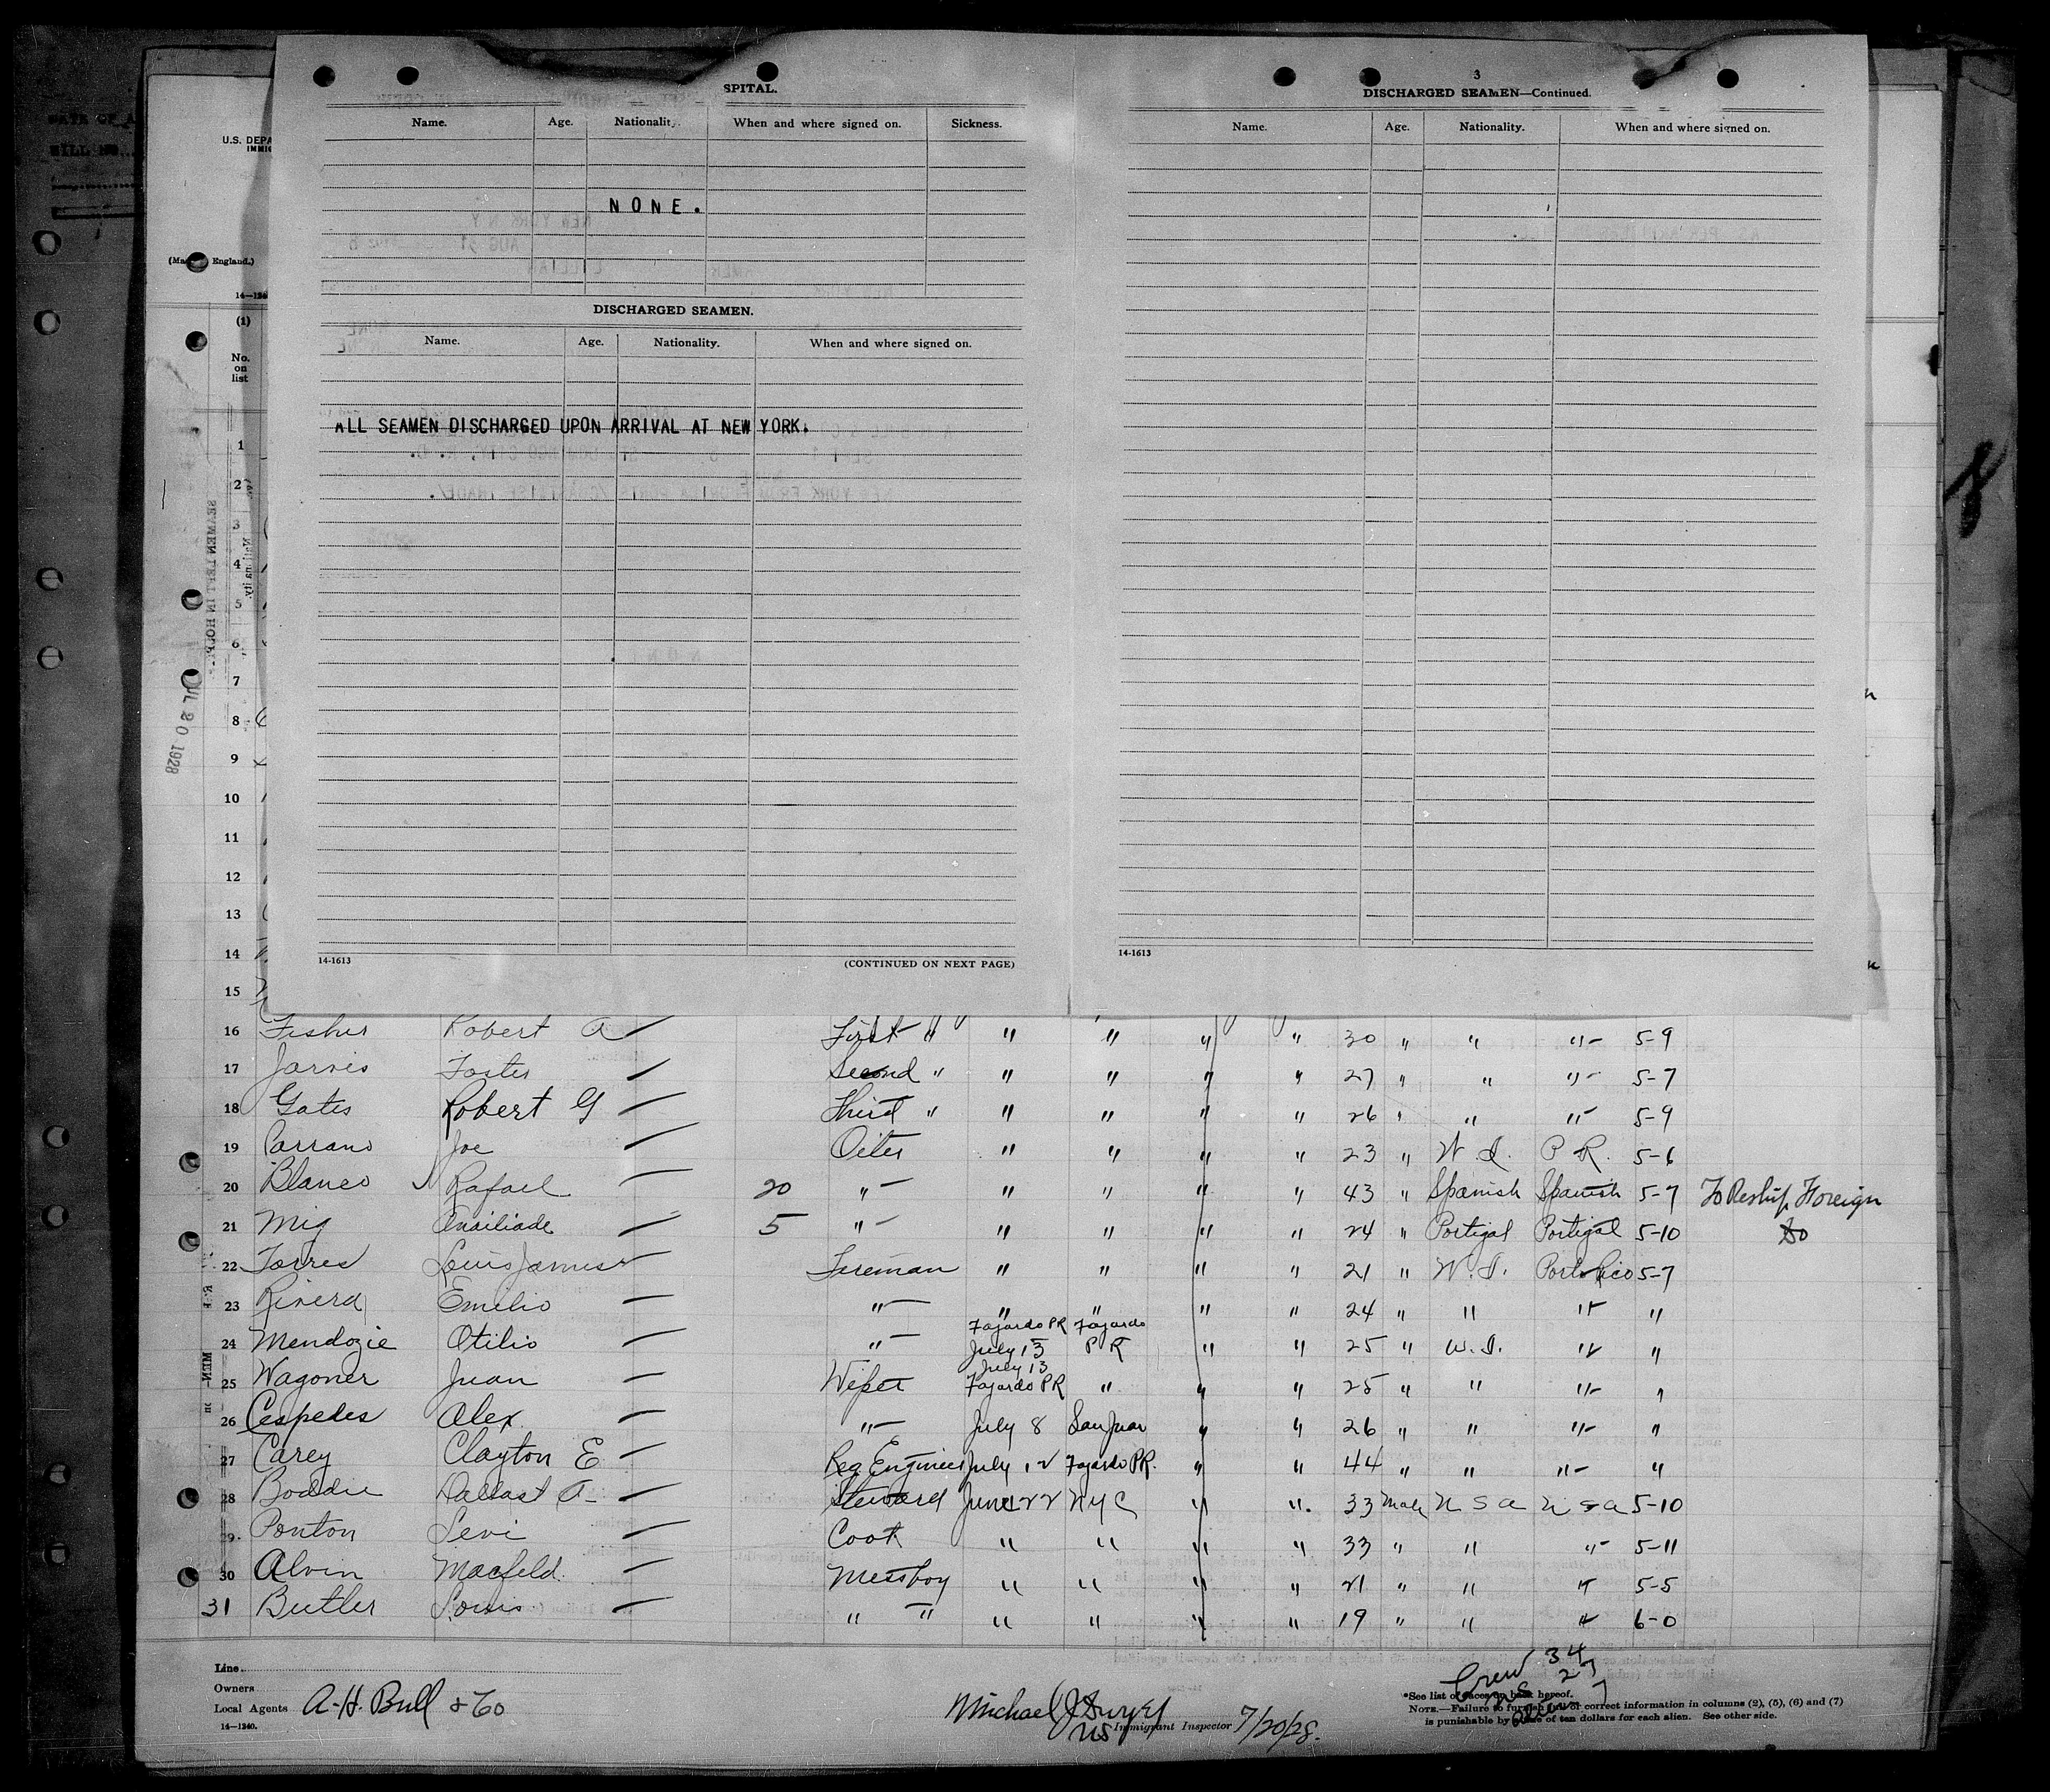 SPITAL.
Name. Age. Nationality. When and where signed on. Sickness.
NONE.
DISCHARGED SEAMEN.
Name. Age. Nationality. When and where signed on.
ALL SEAMEN DISCHARGED UPON ARRIVAL AT NEW YORK.
14-1613
(CONTINUED ON NEXT PAGE)
3
DISCHARGED SEAMEN—Continued.
Name. Age. Nationality. When and where signed on.
14-1613
U.S. DEPA
IMMIG
England.)
(1)
No.
on
list
1
2
3
4
5
6
7
8
9
10
11
12
13
14
15
JUL 20 1928
16 Fisher Robert A First " " " " " 30 " " " 5-9
17 Jarvis Foster Second " " " " " 27 " " " 5-7
18 Gates Robert G Third " " " " " 26 " " " 5-9
19 Carrano Joe Oiler " " " " 23 " W.I. P.R. 5-6
20 Blanco Rafael 20 " " " " " 43 " Spanish Spanish 5-7 To Reship Foreign
21 Mig 5 " " " " " 24 " Portigal Portigal 5-10 do
22 Torres Louis James Fireman " " " " 21 " W.I. Porto Rico 5-7
23 Rivera Emilio " " " " " 24 " " " "
24 Mendozie Otilio " Fajardo PR July 13 Fajardo PR " " 25 " W.I. " "
25 Wagoner Juan Wiper July 13 Fajardo PR " " " 25 " " " "
26 Cespedes Alex " July 8 San Juan " " 26 " " " "
27 Carey Clayton E Reg Engineer July 12 Fajardo PR. " " 44 " " " "
28 Boddie Dallast A- Steward June 22 NYC " " 33 Male U S A U S A 5-10
29. Ponton Levi Cook " " " " 33 " " " 5-11
30 Alvin Macfeld Messboy " " " " 21 " " " 5-5
31 Butler Louis " " " " " " 19 " " " 6-0
Line
Owners
Local Agents A-H. Bull & Co
14—1240.
Michael J
US Immigrant Inspector 7/20/28.
Crew 34
27
7
*See list of races on back hereof.
NOTE.—Failure to furnish full or correct information in columns (2), (5), (6) and (7)
is punishable by fine of ten dollars for each alien. See other side.